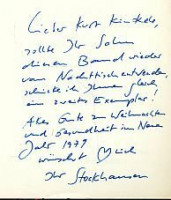 Lieber Kurt Kinkele,
sollte Ihr Sohn
diesen Band wieder
vom Nachttisch entwenden,
schicke ich Ihnen gleich
ein zweites Exemplar!
Alles Gute zu Weihnachten
und Gesundheit im Neuen
Jahr 1979
wünscht
Ihr Stockhausen